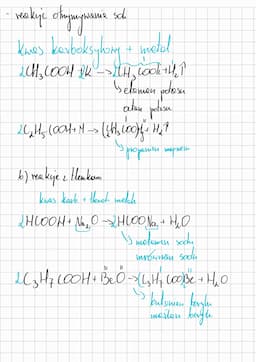 - reakcje otrzymywania soli
kwas karboksylowy + metal
2CH₃COOH + 2K → 2CH₃COOK + H₂↑
↳ etanian potasu
octan potasu
2C₂H₅COOH + M → (C₂H₅COO)₂ + H₂↑
↳ propanian magnezu
b) reakcje z tlenkami
kwas karb. + tlenek metalu
2HCOOH + Na₂O → 2HCOONa + H₂O
↳ metanian sodu
mrówczan sodu
2C₃H₇COOH + BeO → (C₃H₇COO)₂Be + H₂O
↳ butanian berylu
maślan berylu